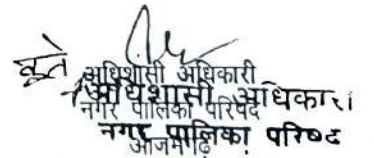 कृते
अधिशासी अधिकारी
अधिशासी अधिकारी
नगर पालिका परिषद
नगर पालिका परिषद
आजमगढ़